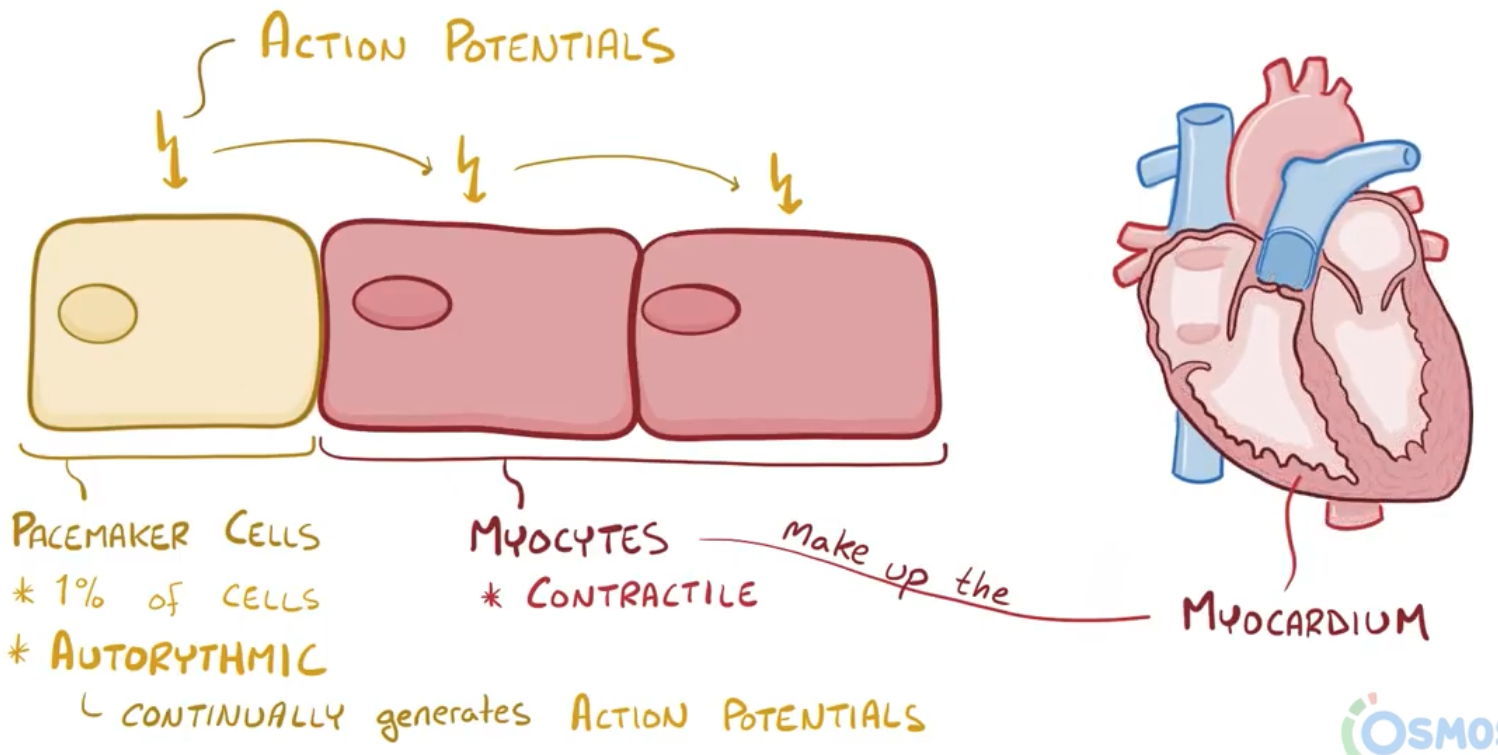 ACTION POTENTIALS
PACEMAKER CELLS
* 1% of CELLS
* AUTORYTHMIC
CONTINUALLY generates ACTION POTENTIALS
MYOCYTES
* CONTRACTILE
Make up the
MYOCARDIUM
OSMOS